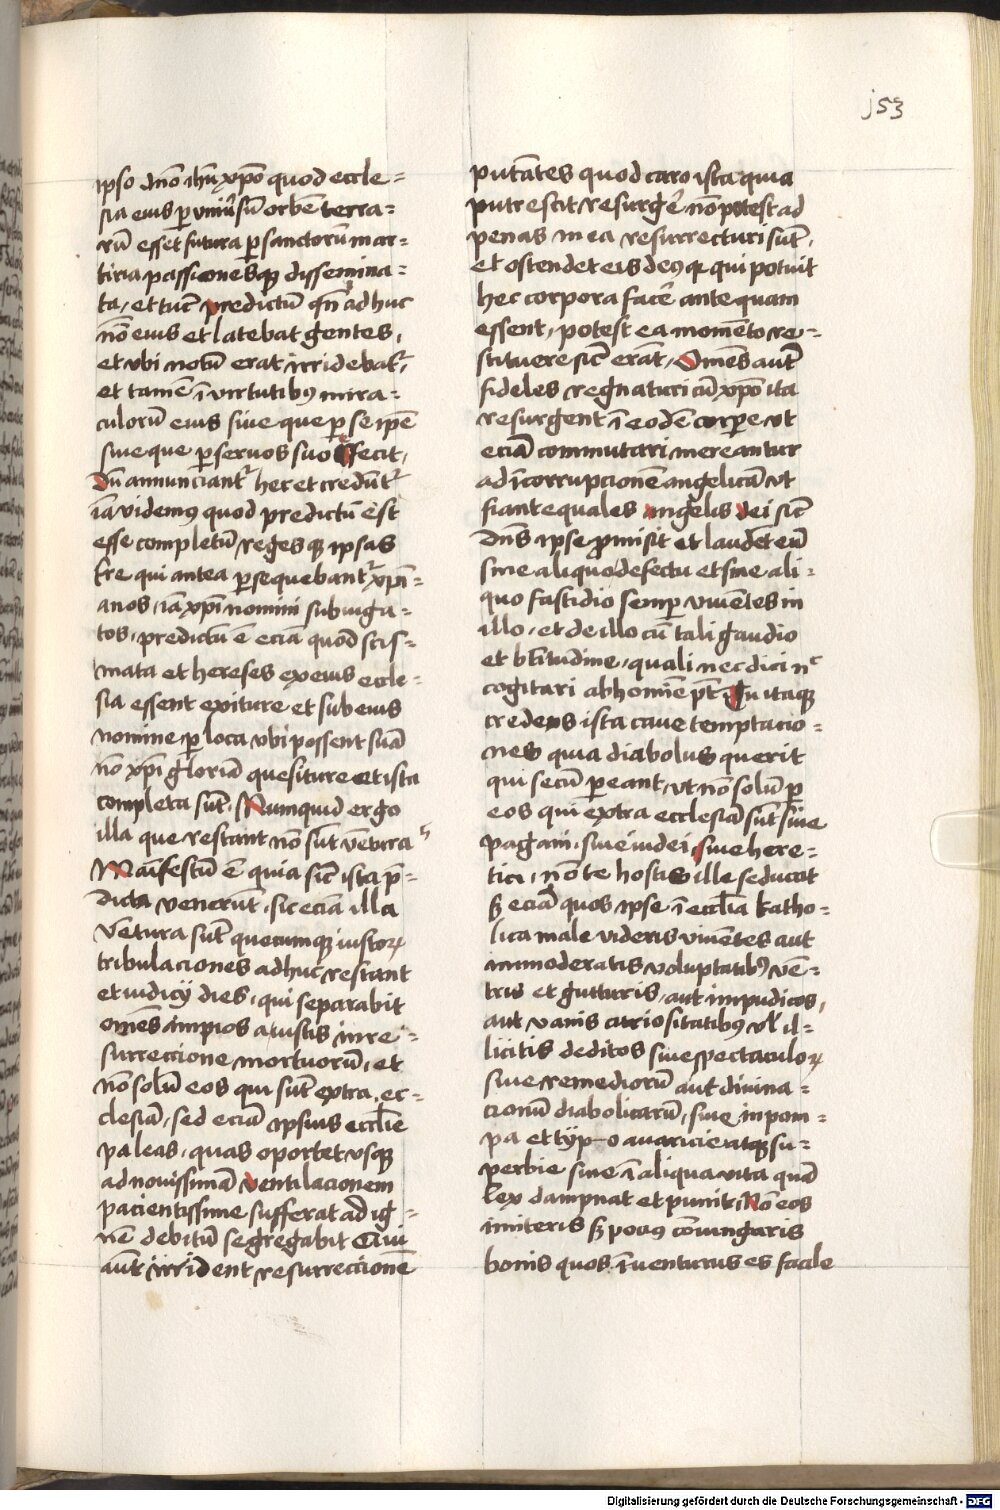 j53
ipso dno ihu xpo quod eccle=
sia eius p vniuersu orbe terra=
ru esset futura p sanctoru mar=
tiria passionesq dissemina=
ta, et tuc predictu qn adhuc
no eius et latebat gentes,
et vbi notu erat irridebat,
et tame i virtutibus mira=
culoru eius siue que p se ipe
siue que p seruos suos fecit,
Du annunciant hec et credunt
ia videmus quod predictu est
esse completu reges q ipsas
tre qui antea psequebant xpi=
anos, ia xpi nomini subiuga=
tos, predictu e ecia quod scis=
mata et hereses ex eius eccle=
sia essent exiture et sub eius
nomine p loca vbi possent sua
no xpi gloria quesiture et ista
completa sut, Numquid ergo
illa que restant no sut ventura
Maifestu e quia sic ista p=
dicta venerut, sic ecia illa
Vetura sut quecumq iustoꝝ
tribulaciones adhuc restant
et iudicij dies, qui separabit
omes impios a iustis in re=
surreccione mortuoru, et
no solu eos qui sut extra ec=
clesia, sed ecia ipsius ecclie
paleas, quas oportet vsq
ad nouissima ventilacionem
pacientissime sufferat ad ig=
ne debitu segregabit Qui
aut irrident resurreccione
putates quod caro ista quia
putrescit resurge no potest ad
penas in ea resurrecturi sut,
et ostendet eis deus q qui potuit
hec corpora face antequam
essent, potest ea mometo re=
stituere sic erat, Omes aut
fideles regnaturi cu xpo ita
resurgent i eode corpore vt
ecia commutari mereantur
ad icorrupcione angelica vt
fiant equales angelis dei sic
dns ipse pmisit et laudet eu
sine aliquo defectu et sine ali=
quo fastidio semp viuetes in
illo, et de illo cu tali gaudio
et btitudine, quali nec dici nc
cogitari ab homie pt Tu itaq
credens ista caue temptacio=
nes quia diabolus querit
qui secu peant, vt no solu p
eos qui extra ecclesia sut siue
pagani, siue iudei, siue here=
tici, no te hostis ille seducat
s ecia quos ipse i ecclia katho=
lica male videris viuetes aut
immoderatis voluptatibus ve=
tris et gutturis, aut impudicos,
aut vanis curiositatibus vl il=
licitis deditos siue spectaculoꝝ
siue remedioru aut diuina=
cionu diabolicaru, siue in pom=
pa et typo auaricie atq su=
perbie siue i aliqua vita qua
lex dampnat et punit, No eos
imiteris s pocius coniungaris
bonis quos iuenturus es facile